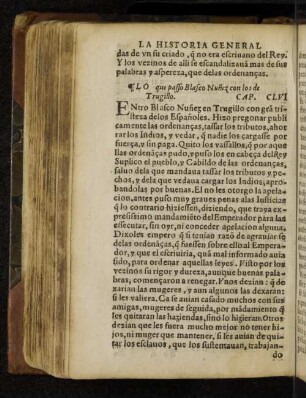 LA HISTORIA GENERAL
das de vn su criado, q̃ no era escriuano del Rey.
Y los vezinos de alli se escandalizauã mas de sus
palabras y aspereza, que delas ordenanças.
¶LO que passo Blasco Nuñez con los de
Trugillo. CAP. CLVI
ENtro Blasco Nuñez en Trugillo con grã tri
steza delos Españoles. Hizo pregonar publi
camente las ordenanças, tassar los tributos, ahor
rar los Indios, y vedar, q̃ nadie los cargasse por
fuerça, y sin paga. Quito los vassallos, q̃ por aque
llas ordenãças pudo, y puso los en cabeça del Rey
Suplico el pueblo, y Cabildo de las ordenanças,
saluo dela que mandaua tassar los tributos y pe-
chos, y dela que vedaua cargar los Indios, apro-
bandolas por buenas. El no les otorgo la apela-
cion, antes puso muy graues penas alas Iusticias
q̃ lo contrario hiziessen, diziendo, que traya ex-
pressissimo mandamiẽto del Emperador para las
essecutar, sin oyr, ni conceder apelacion alguna.
Dixoles empero q̃ si tenian razõ de agrauiarse
delas ordenãças, q̃ fuessen sobre ello al Empera-
dor, y que el escriuiria, quã mal informado auia
sido, para ordenar aquellas leyes. Visto por los
vezinos su rigor y dureza, aunque buenas palas
bras, començaron a renegar. Vnos dezian: q̃ de
xarian las mugeres, y aun algunos las dexaran:
si les valiera. Ca se auian casado muchos con sus
amigas, mugeres de seguida, por mãdamiento q̃
les quitaran las haziendas, sino lo hizieran. Otros
dezian que les fuera mucho mejor no tener hi-
jos, ni muger que mantener, si les auian de qui-
tar los esclauos, que los sustentauan, trabajan-
do